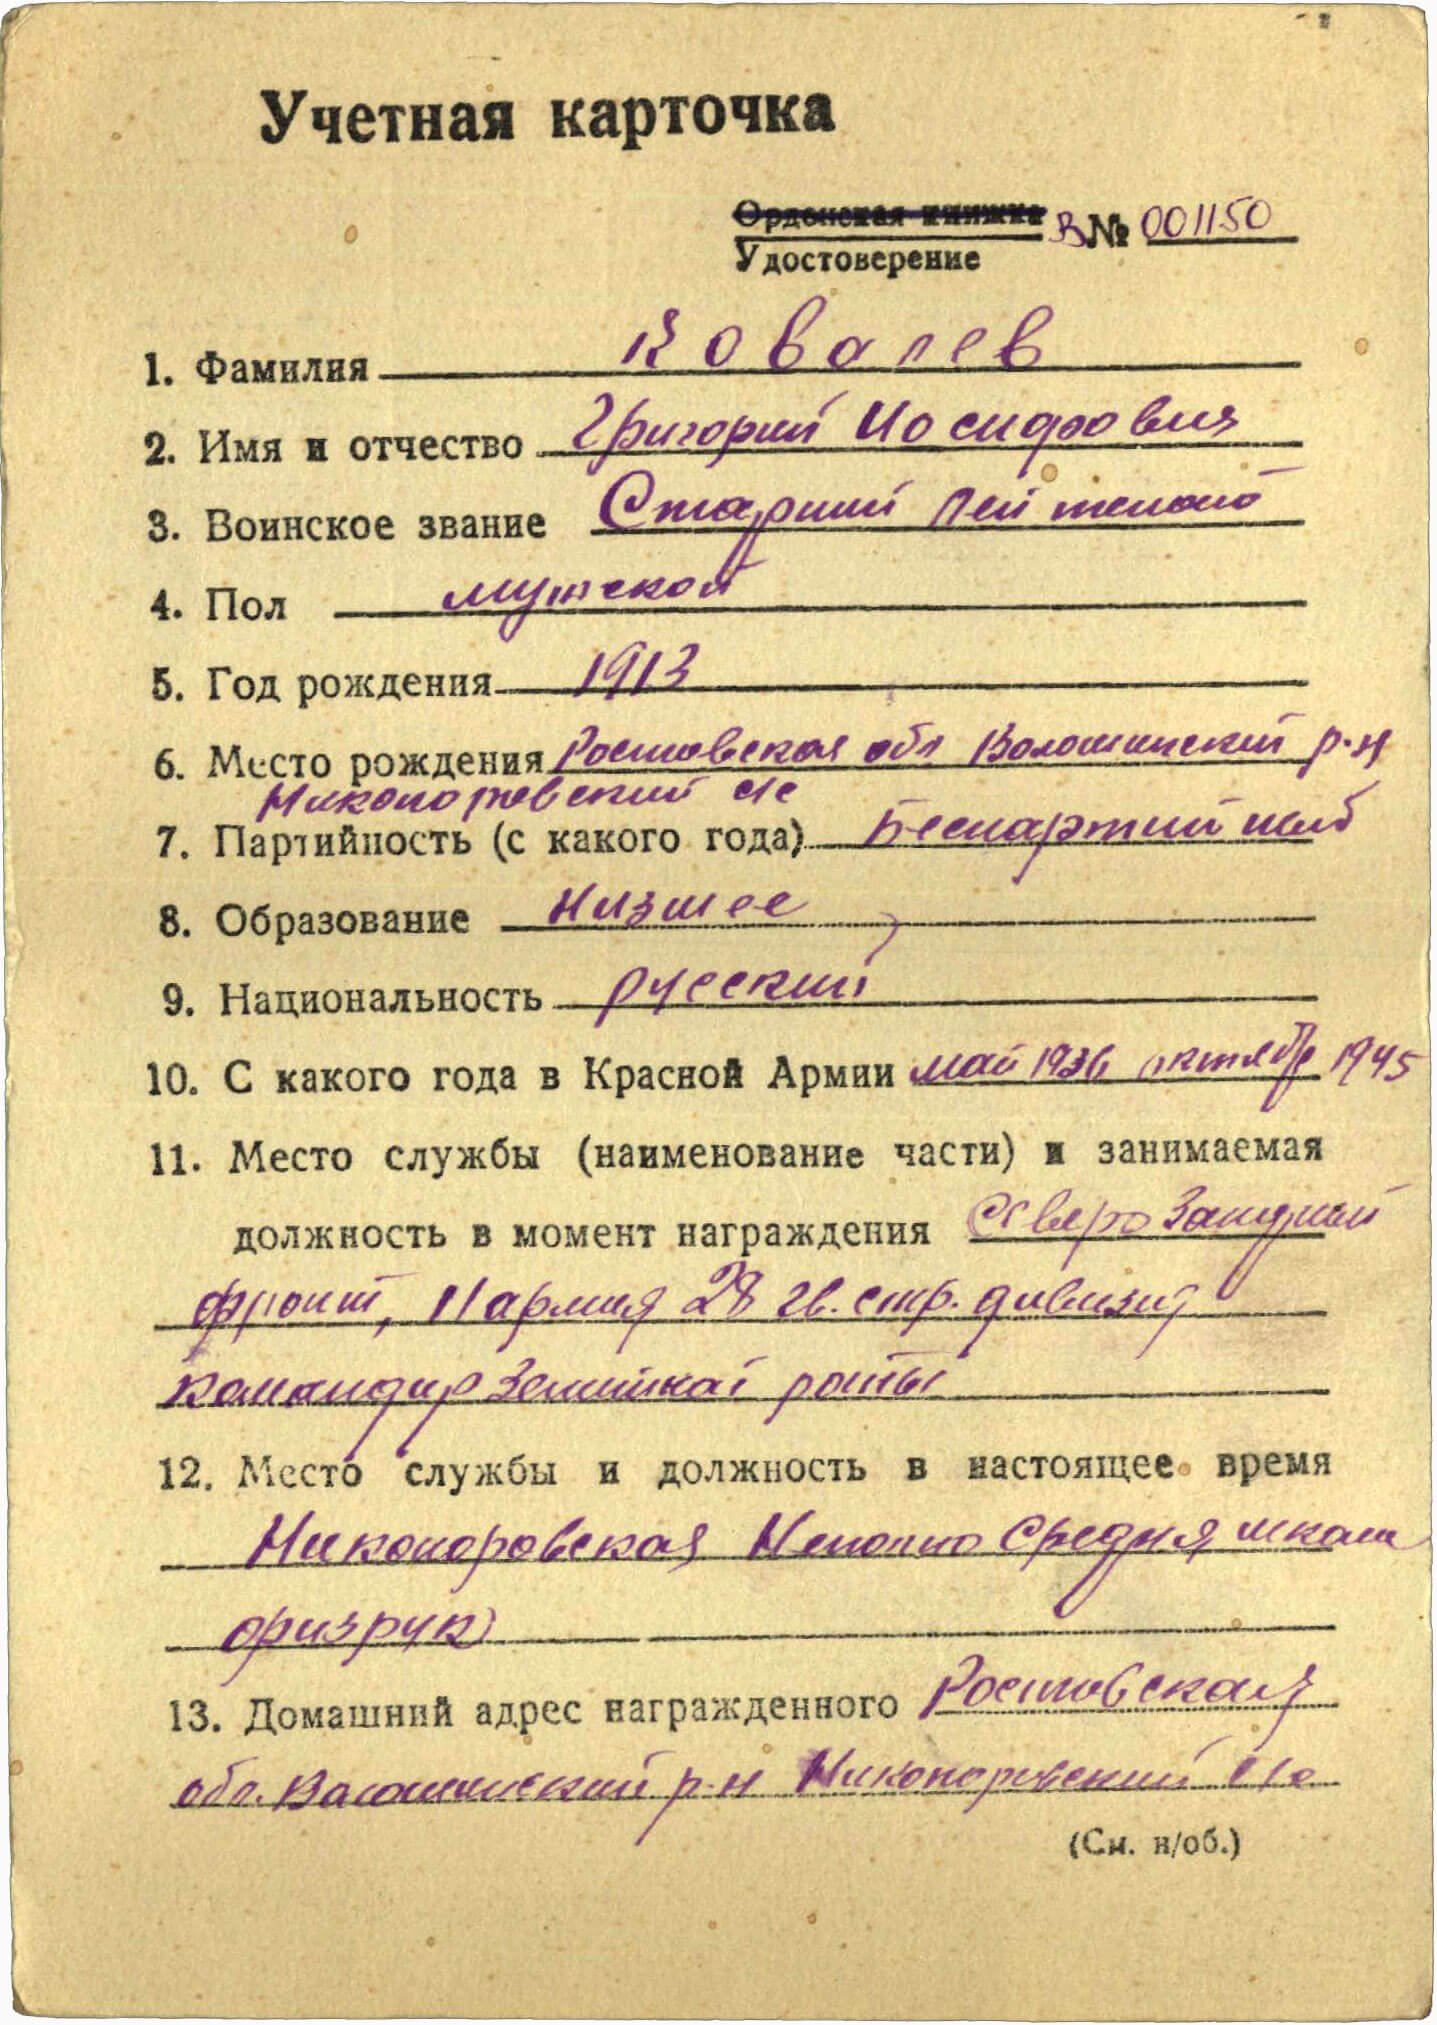 Учетная карточка
Орденская книжка В № 001150
Удостоверение
1. Фамилия Ковалев
2. Имя и отчество Григорий Иосифович
3. Воинское звание Старший лейтенант
4. Пол мужской
5. Год рождения 1913
6. Место рождения Ростовская обл Волошинский р-н
Никоноровский с/с
7. Партийность (с какого года) Беспартийный
8. Образование Низшее
9. Национальность русский
10. С какого года в Красной Армии май 1936 октябр 1945
11. Место службы (наименование части) и занимаемая
должность в момент награждения Северо Западный
фронт, 11 армия 28 гв. стр. дивизия
командир роты
12. Место службы и должность в настоящее время
Никоноровская Неполно Средняя школа
физрук
13. Домашний адрес награжденного Ростовская
обл. Волошинский р-н Никоноровский с/с
(См. н/об.)